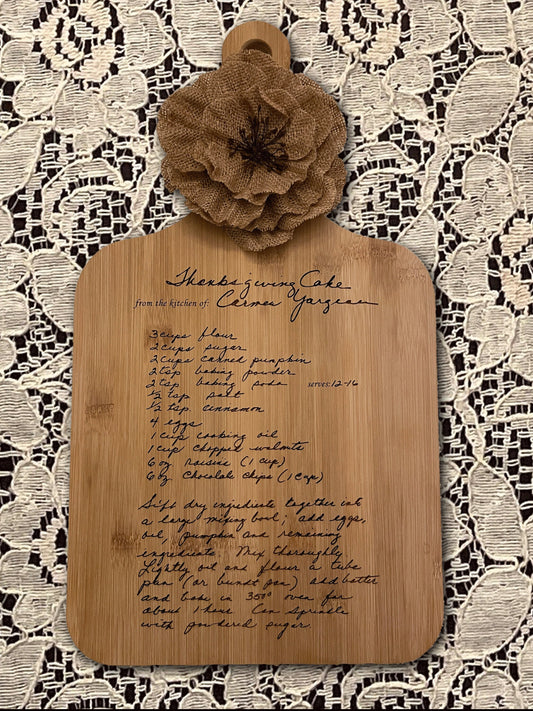 Thanksgiving Cake
from the kitchen of: Carmen
3 cups flour
2 cups sugar
2 cups canned pumpkin
2 tsp baking powder
2 tsp baking soda serves: 12-16
½ tsp salt
½ tsp. cinnamon
4 eggs
1 cup cooking oil
1 cup chopped walnuts
6 oz raisins (1 cup)
6 oz chocolate chips (1 cup)
Sift dry ingredients together into
a large mixing bowl; add eggs,
oil, pumpkin and remaining
ingredients. Mix thoroughly.
Lightly oil and flour a tube
pan (or bundt pan) add batter
and bake in 350° oven for
about 1 hour Can sprinkle
with powdered sugar.